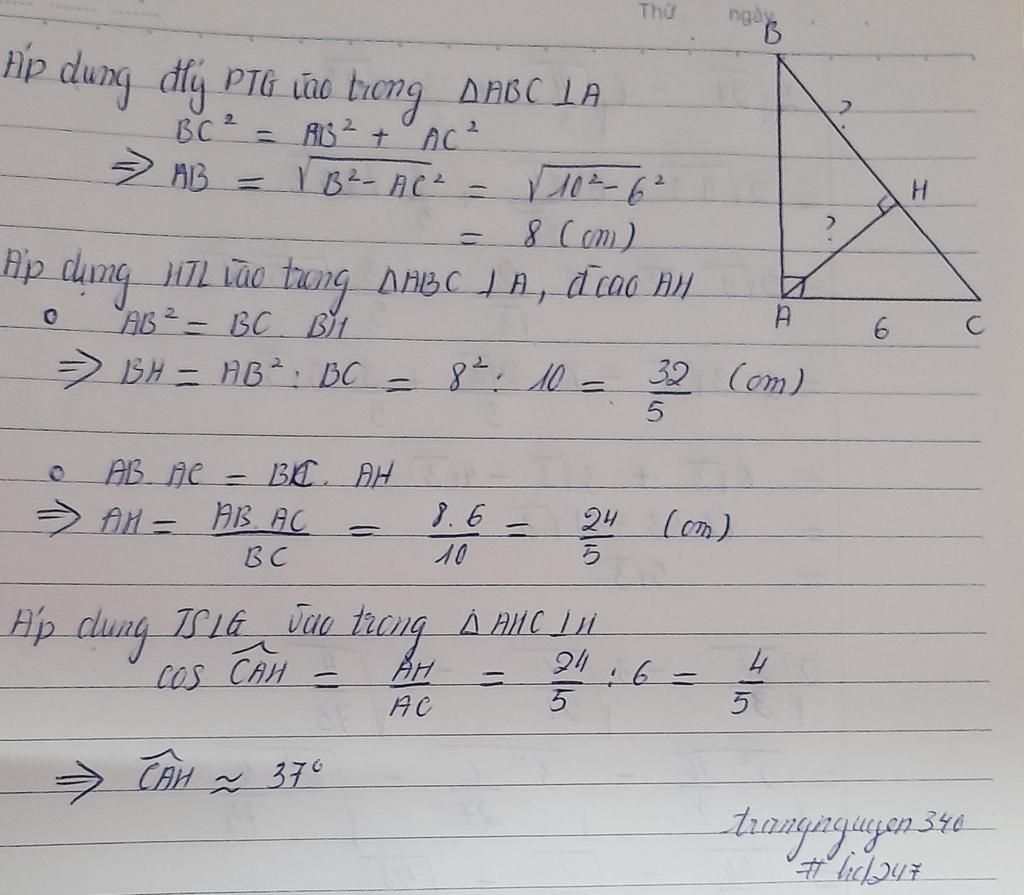 Thứ ngày
B
Áp dụng đlý PTG vào trong ΔABC ⊥ A
?
BC² = AB² + AC²
⇒ AB = √B² - AC² = √10² - 6²
H
= 8 (cm)
?
Áp dụng HTL vào trong ΔABC ⊥ A, đcao AH
A 6 C
o AB² = BC BH
⇒ BH = AB² : BC = 8² : 10 = 32/5 (cm)
o AB. AC = BC. AH
⇒ AH = AB. AC/BC = 8. 6/10 = 24/5 (cm)
Áp dụng TSLG vào trong ΔAHC ⊥ H
cos CAH = AH/AC = 24/5 : 6 = 4/5
⇒ CAH ≈ 37°
trangnguyen340